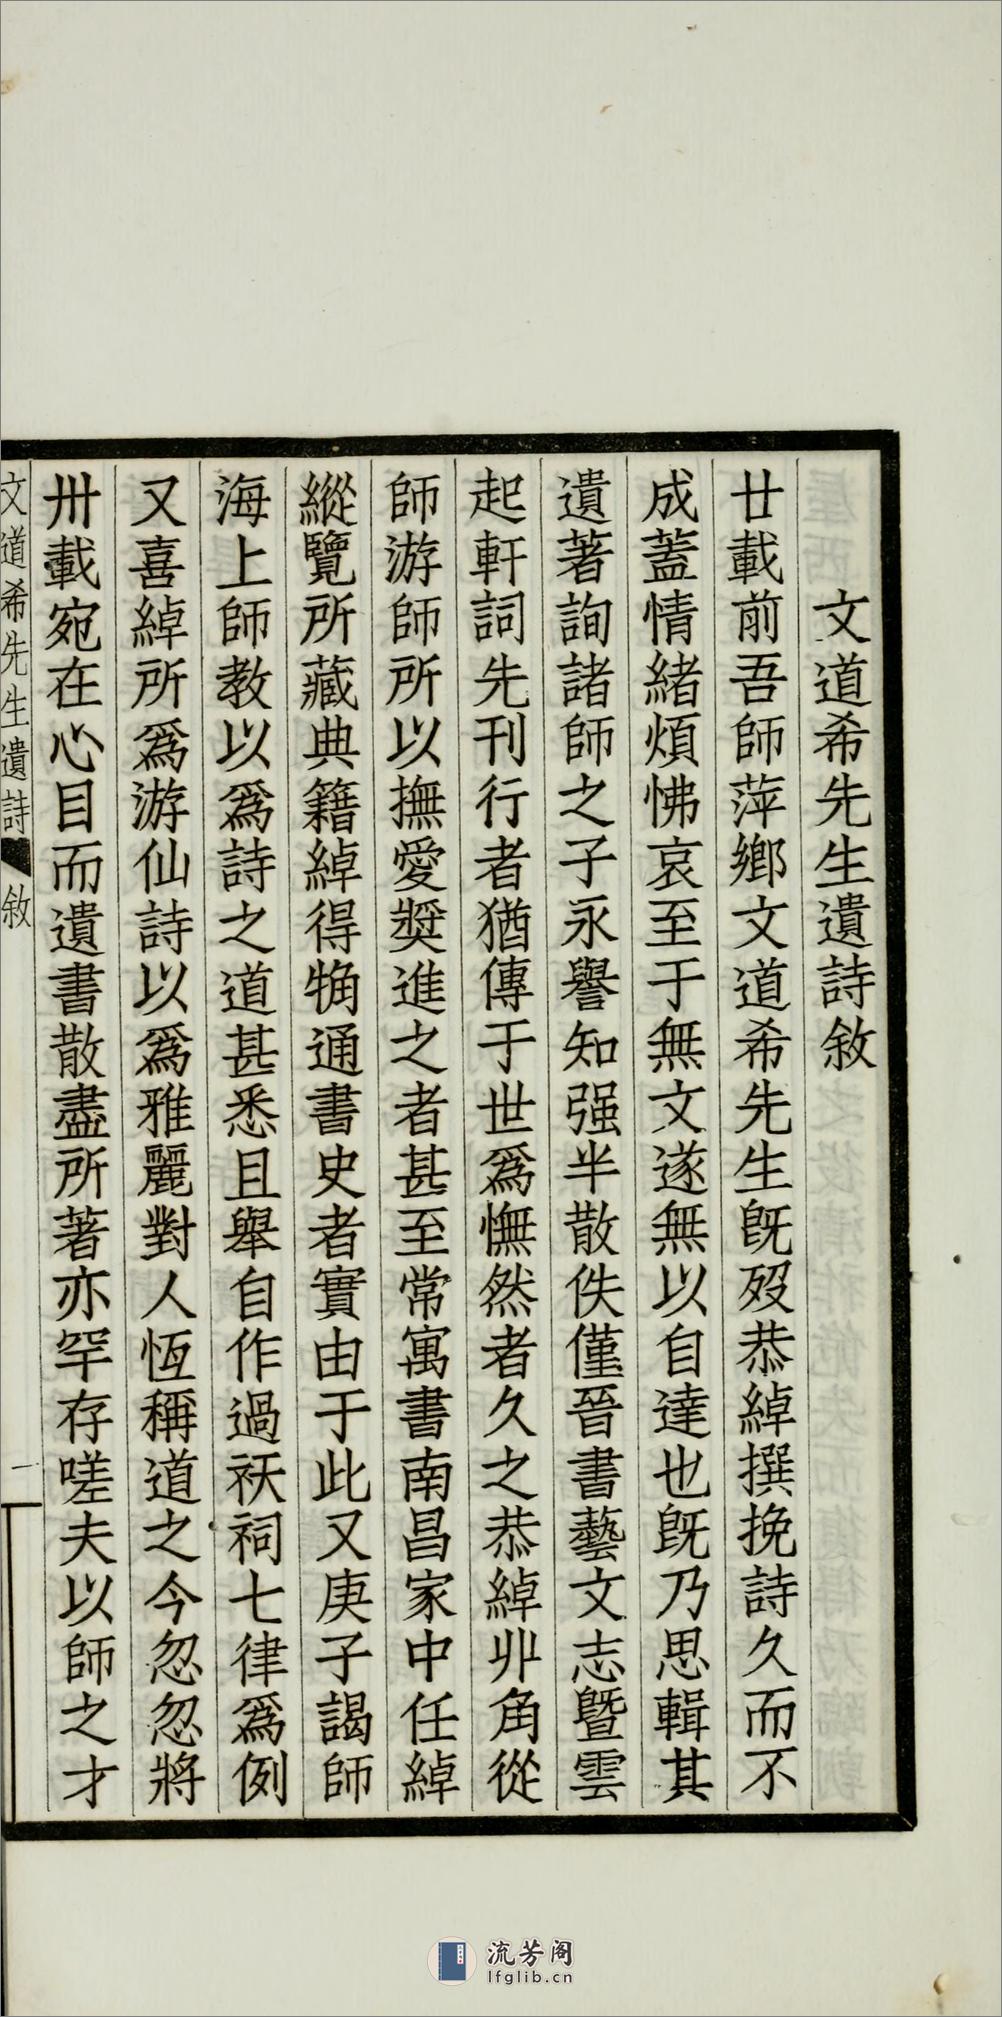 文道希先生遺詩敘
廿載前吾師萍鄉文道希先生旣歿恭綽撰挽詩久而不
成蓋情緒煩怫哀至于無文遂無以自達也旣乃思輯其
遺著詢諸師之子永譽知强半散佚僅晉書藝文志曁雲
起軒詞先刊行者猶傳于世爲憮然者久之恭綽丱角從
師游師所以撫愛奬進之者甚至常寓書南昌家中任綽
縱覽所藏典籍綽得觕通書史者實由于此又庚子謁師
海上師教以爲詩之道甚悉且舉自作過祅祠七律爲例
又喜綽所爲游仙詩以爲雅麗對人恆稱道之今忽忽將
卅載宛在心目而遺書散盡所著亦罕存嗟夫以師之才
文道希先生遺詩 敘 一
流芳阁
lfglib.cn